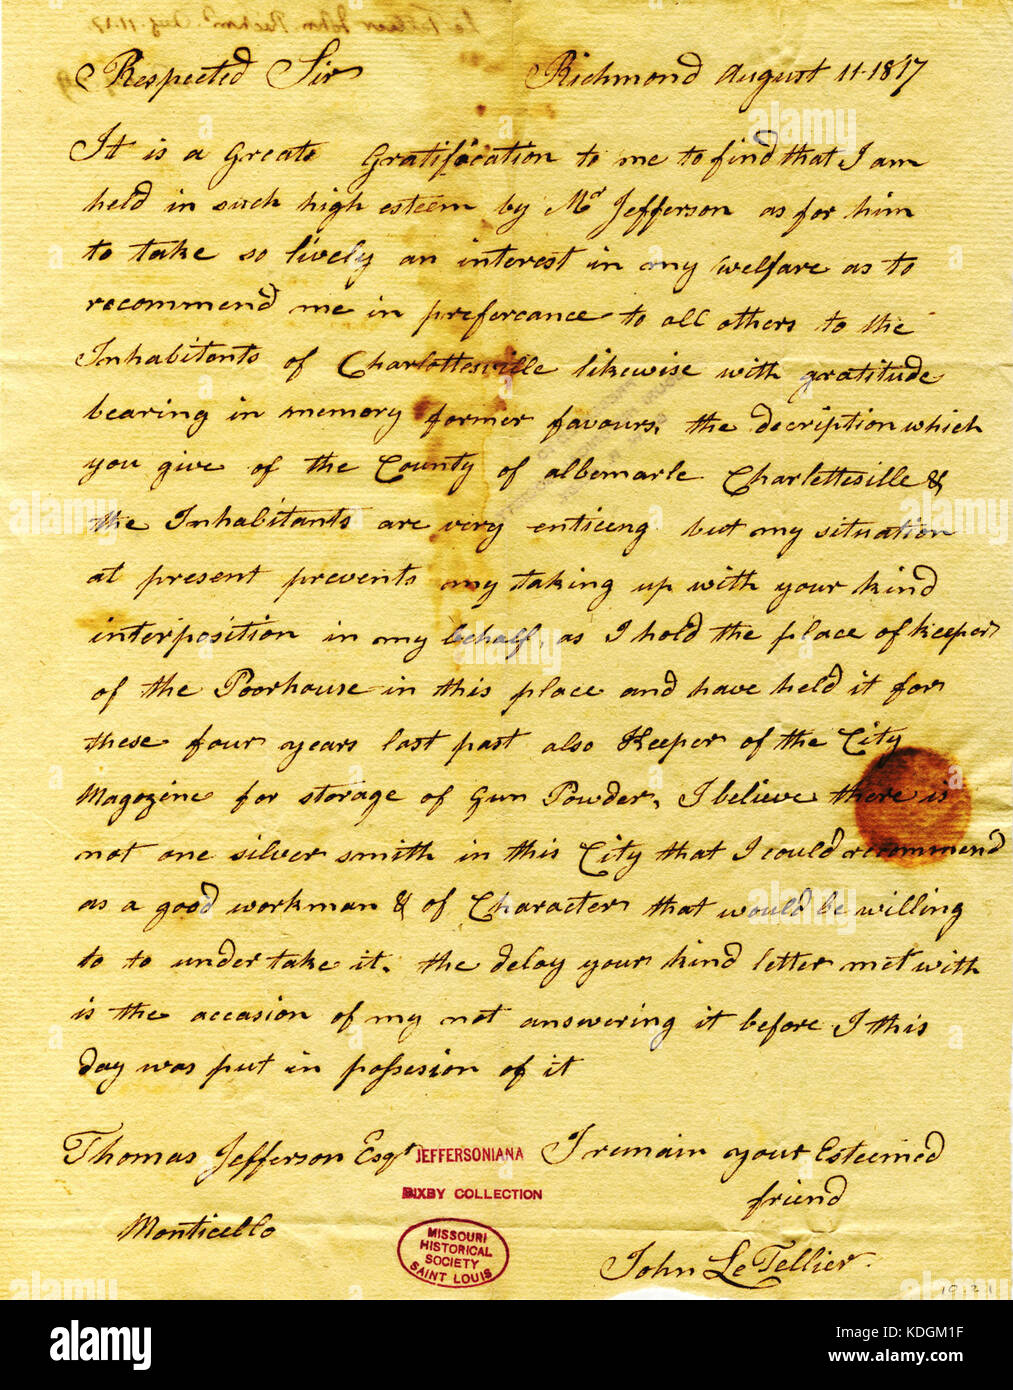 Le Tellier John. Richmd. Aug. 11. 17
Respected Sir Richmond August 11-1817
It is a Greate Gratification to me to find that I am
held in such high esteem by Mr Jefferson as for him
to take so lively an interest in my welfare as to
recommend me in prefereance to all others to the
Inhabitents of Charlottesville likewise with gratitude
bearing in memory former favours, the decription which
you give of the County of albemarle Charlettesille &
the Inhabitants are very enticeng but my situation
at present prevents my taking up with your kind
interposition in my behalf, as I hold the place of keeper
of the Poorhouse in this place and have held it for
these four years last past also Keeper of the City
Magozine for storage of Gun Powder, I believe there is
not one silver smith in this City that I could recommend
as a good workman & of Character that would be willing
to to undertake it. the delay your kind letter met with
is the occasion of my not answering it before I this
day was put in possesion of it
Thomas Jefferson Esqr JEFFERSONIANA I remain your Esteemed
BIXBY COLLECTION friend
Monticello
MISSOURI
HISTORICAL
SOCIETY
SAINT LOUIS
John Le Tellier.
alamy
Image ID: KDGM1F
www.alamy.com